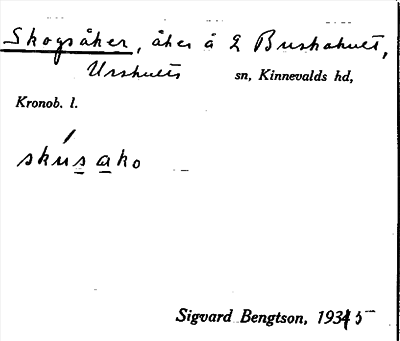 Skogsåker, åker å 2 Buskahult,
Urshults sn, Kinnevalds hd,
Kronob. l.
skúsako
Sigvard Bengtson, 1935